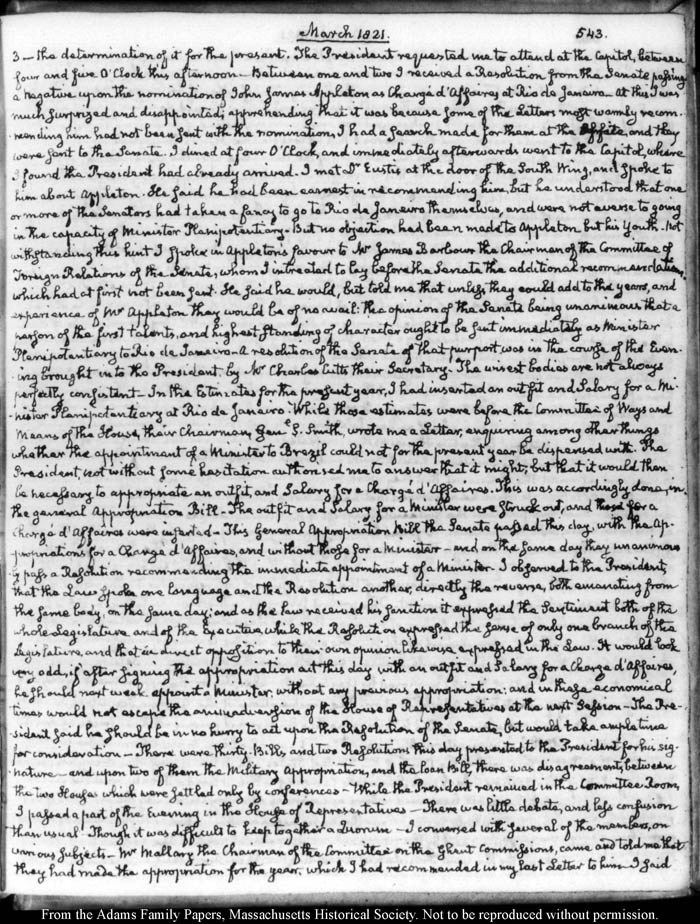 March 1821.
543.
3 – the determination of it for the present. The President requested me to attend at the Capitol, between
four and five O'Clock this afternoon – Between one and two I received a Resolution from the Senate passing
a negative upon the nomination of John James Appleton as Chargé d'Affaires at Rio de Janeiro – At this I was
much surprized and disappointed; apprehending that it was because some of the Letters most warmly recom-
mending him had not been sent with the nomination, I had a search made for them at the Office, and they
were sent to the Senate. I dined at four O'Clock, and immediately afterwards went to the Capitol, where
I found the President had already arrived. I met Dr Eustis at the door of the South Wing, and spoke to
him about Appleton. He said he had been earnest in recommending him, but he understood that one
or more of the Senators had taken a fancy to go to Rio de Janeiro themselves, and were not averse to going
in the capacity of Minister Plenipotentiary – But no objection had been made to Appleton, but his Youth – Not
withstanding this hint I spoke in Appleton's favour to Mr James Barbour the Chairman of the Committee of
Foreign Relations of the Senate, whom I intreated to lay before the Senate the additional recommendations,
which had at first not been sent. He said he would, but told me that unless they could add to the years, and
experience of Mr Appleton they would be of no avail: the opinion of the Senate being unanimous that a
person of the first talents, and highest standing of character ought to be sent immediately as Minister
Plenipotentiary to Rio de Janeiro – A resolution of the Senate of that purport was in the course of the Even-
ing brought in to the President, by Mr Charles Cutts their Secretary. The wisest bodies are not always
perfectly consistent – In the Estimates for the present year, I had inserted an outfit and Salary for a Mi-
nister Plenipotentiary at Rio de Janeiro. While those estimates were before the Committee of Ways and
Means of the House, their Chairman, Genl S. Smith, wrote me a Letter, enquiring among other things
whether the appointment of a Minister to Brezil could not for the present year be dispensed with. The
President, not without some hesitation authorised me to answer that it might; but that it would then
be necessary to appropriate an outfit, and Salary for a Chargé d'Affaires. This was accordingly done, in
the general Appropriation Bill – The outfit and Salary for a Minister were struck out, and those for a
Chargé d'Affaires were inserted – This General Appropriation Bill the Senate passed this day, with the Ap-
propriations for a Chargé d'Affaires, and without those for a Minister – and on the same day they unanimous
ly pass a Resolution recommending the immediate appointment of a Minister. I observed to the President,
that the Law spoke one language and the Resolution another, directly the reverse, both emanating from
the same body, on the same day; and as the Law received his sanction it expressed the Sentiment both of the
whole Legislature and of the Executive, while the Resolution expressed the sense of only one branch of the
Legislature, and that in direct opposition to their own opinion likewise expressed in the Law. It would look
very odd, if after signing the appropriation act this day with an outfit and Salary for a Chargé d'Affaires,
he should next week appoint a Minister, without any previous appropriation; and in these economical
times would not escape the animadversion of the House of Representatives at the next Session – The Pre-
sident said he should be in no hurry to act upon the Resolution of the Senate, but would take ample time
for consideration – There were thirty Bills, and two Resolutions this day presented to the President for his sig-
nature – and upon two of them the Military Appropriation, and the loan Bill, there was disagreement, between
the two Houses which were settled only by conferences – While the President remained in the Committee Room,
I passed a part of the Evening in the House of Representatives – There was little debate, and less confusion
than usual. Though it was difficult to keep together a Quorum – I conversed with several of the members, on
various subjects – Mr Mallary the Chairman of the Committee on the Ghent Commissions, came and told me that
they had made the appropriation for the year, which I had recommended in my last Letter to him – I said
From the Adams Family Papers, Massachusetts Historical Society. Not to be reproduced without permission.